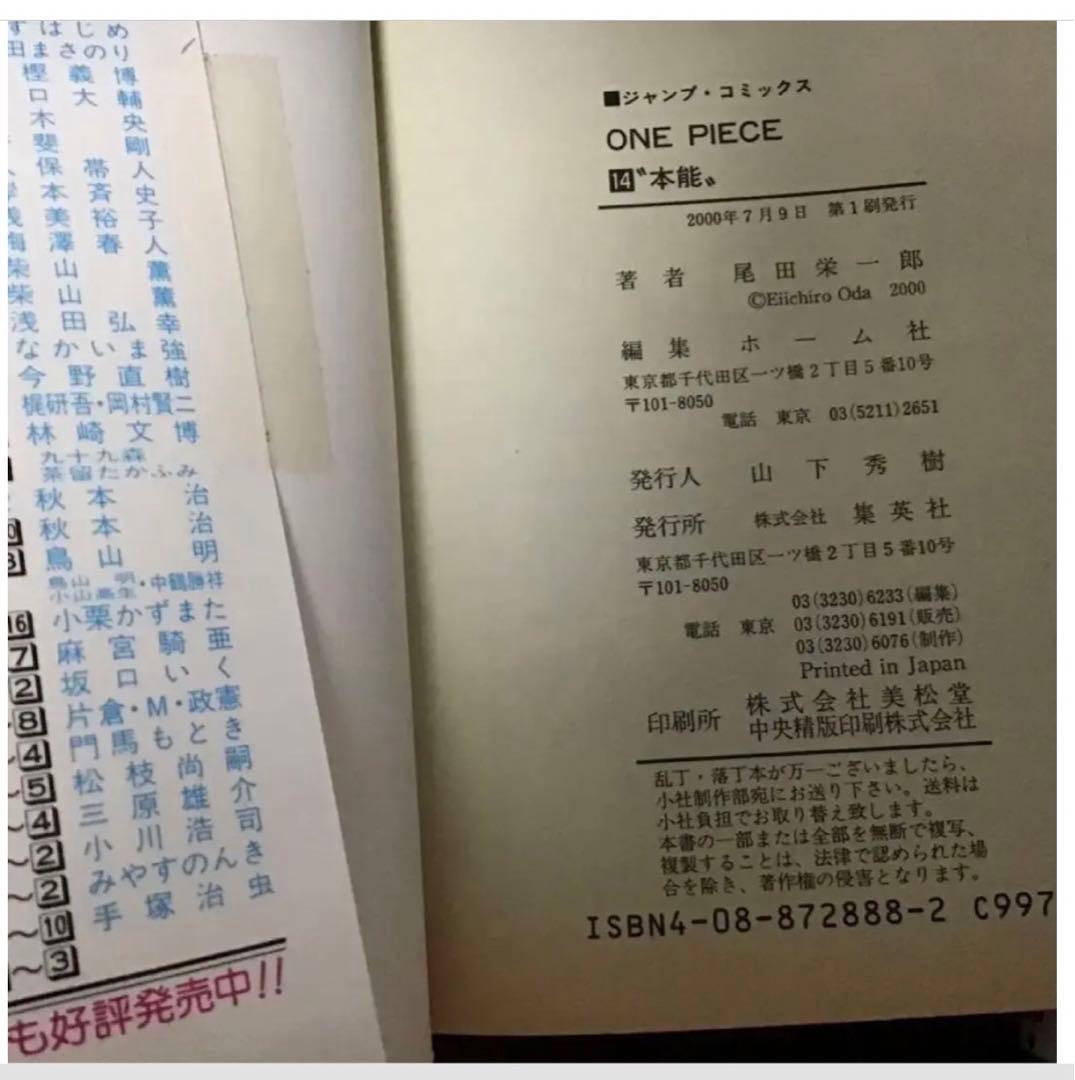 ずはじめ
田まさのり
樫義博
口大輔
木央
斐剛
保帯人
本斉史
浅美裕子
梅澤春人
柴山薫
柴山薫
浅田弘幸
なかいま強
今野直樹
梶研吾・岡村賢二
林崎文博
九十九森
茶留たかふみ
秋本治
秋本治
鳥山明
鳥山明・中鶴勝祥
小山高生
16 小栗かずまた
7 麻宮騎亜
2 坂口いく
8 片倉・M・政憲
~4 門馬もとき
~5 松枝尚嗣
~4 三原雄介
~2 小川浩司
~2 みやすのんき
~10 手塚治虫
~3
も好評発売中!!
■ジャンプ・コミックス
ONE PIECE
14〝本能〟
2000年7月9日 第1刷発行
著者 尾田栄一郎
©Eiichiro Oda 2000
編集 ホーム社
東京都千代田区一ツ橋2丁目5番10号
〒101-8050
電話 東京 03(5211)2651
発行人 山下秀樹
発行所 株式会社 集英社
東京都千代田区一ツ橋2丁目5番10号
〒101-8050
03(3230)6233(編集)
電話 東京 03(3230)6191(販売)
03(3230)6076(制作)
Printed in Japan
印刷所 株式会社美松堂
中央精版印刷株式会社
乱丁・落丁本が万一ございましたら、
小社制作部宛にお送り下さい。送料は
小社負担でお取り替え致します。
本書の一部または全部を無断で複写、
複製することは、法律で認められた場
合を除き、著作権の侵害となります。
ISBN4-08-872888-2 C997